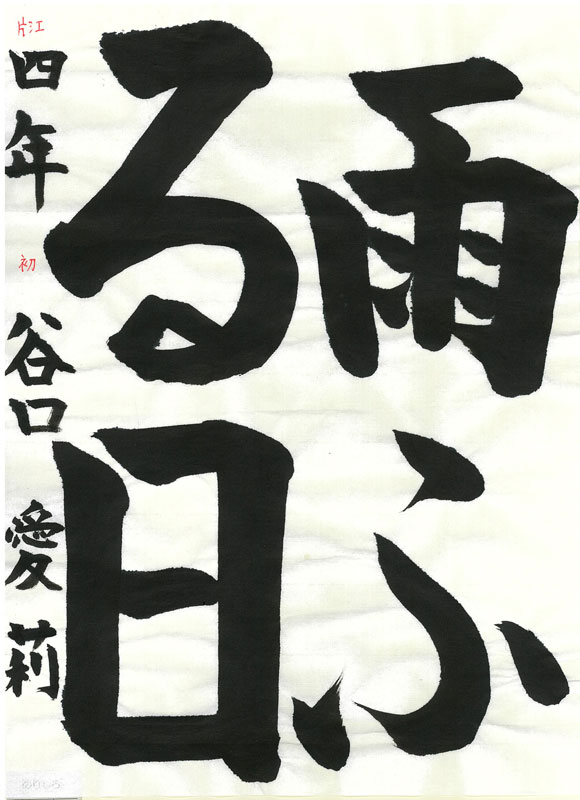 雨ふ
る日
片江
四年
初
谷口 愛莉